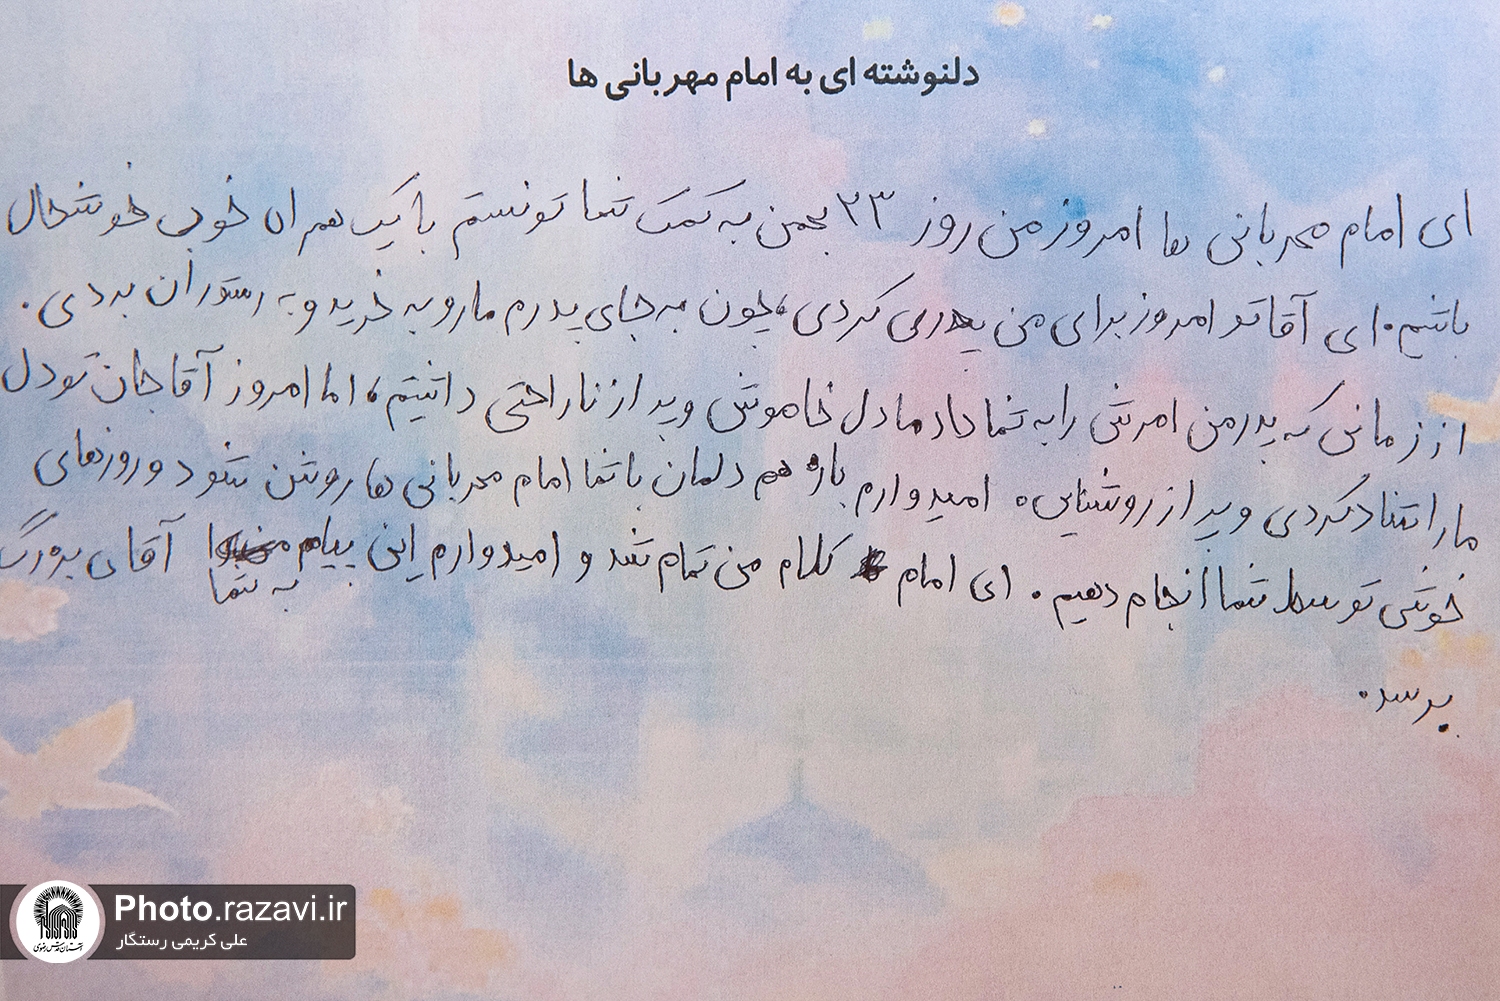 دلنوشته ای به امام مهربانی ها
ای امام مهربانی ها امروز من روز ۲۳ بهمن به کمک شما تونستم با یک همراه خوب خوشحال
باشم. ای آقا تو امروز برای من پدری کردی، چون به جای پدرم مارو به خرید و به رستوران بردی.
از زمانی که پدر من امرش را به شما داد ما دل خاموش و پر از ناراحتی داشتیم، اما امروز آقا جان تو دل
ما را شاد کردی و پر از روشنایی. امیدوارم بازم هم دلمان با شما امام مهربانی ها روشن شود و روزهای
خوشی توسط شما انجام دهیم. ای امام کلام من تمام شد و امیدوارم این پیام به شما آقای بزرگ
برسد.
Photo.razavi.ir
علی کریمی رستگار
آستان قدس رضوی